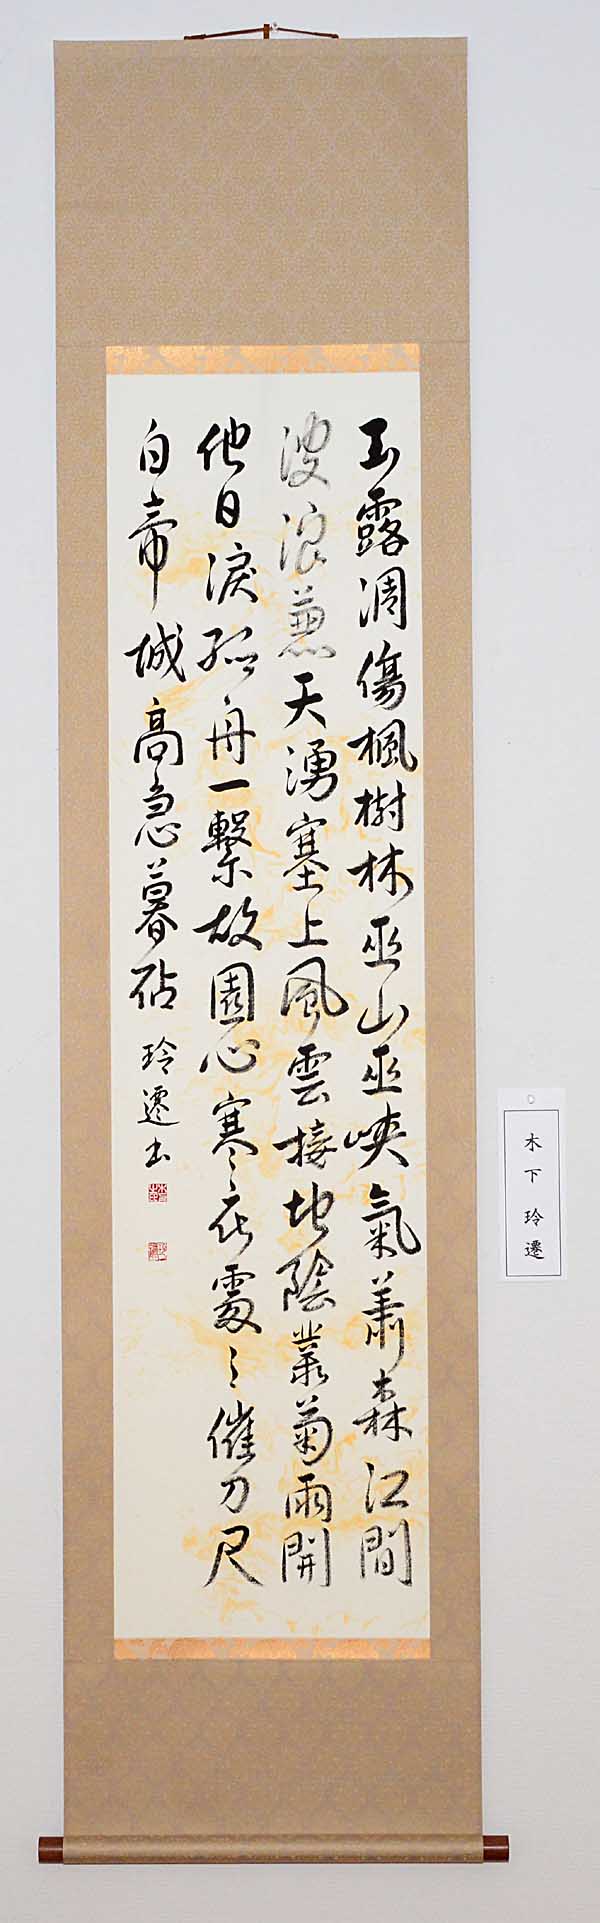 玉露凋傷楓樹林巫山巫峽氣蕭森江間
波浪兼天湧塞上風雲接地陰叢菊兩開
他日淚孤舟一繫故園心寒衣處〻催刀尺
白帝城高急暮砧 玲遷書
木下玲遷